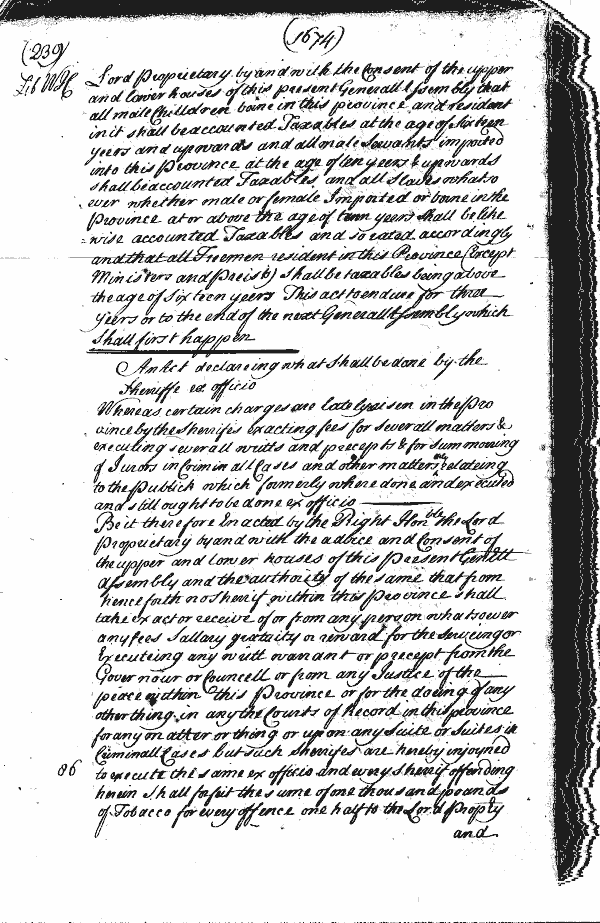 (1674)
(239)
Lib WH
Lord Proprietary by and with the Consent of the upper
and lower houses of this present Generall Assembly that
all male Children borne in this province and resident
in it shall be accounted Taxables at the age of sixteen
yeers and upwards and all male Servants imported
into this Province at the age of ten yeers & upwards
shall be accounted Taxables and all Slaves whatso
ever whether male or female Imported or borne in the
Province at or above the age of tenn yeers shall be like
=wise accounted Taxables and so rated accordingly
and that all Freemen resident in this Province (Except
Ministers and Preists) shall be taxables being above
the age of sixteen yeers This act to endure for three
yeers or to the end of the next Generall Assembly which
shall first happen
An Act declareing what shall be done by the
Sherriffe ex officio
Whereas certain charges are lately risen in the Pro
vince by the Sherrifes exacting fees for severall matters &
executing severall writts and precepts & for summoning
of Jurors in Criminall Cases and other matters only relateing
to the Publick which formerly where done and executed
and still ought to be done ex officio
Be it therefore Enacted by the Right Honble the Lord
Proprietary by and with the advice and Consent of
the upper and lower houses of this Present Genrll
Assembly and the authority of the same that from
henceforth no Sherrif within this Province shall
take exact or receive of or from any person whatsoever
any fees Sallary gratuity or reward for the Serveing or
Executeing any writt warrant or precept from the
Governour or Councell or from any Justice of the
peace within this Province or for the doeing of any
other thing in any the Courts of Record in this province
for any matter or thing or upon any Suite or Suites in
Criminall Cases but such Sherrifes are hereby injoyned
86
to execute the same ex officio and every Sherrif offending
herein Shall forfeit the sume of one thousand pounds
of Tobacco for every offence one half to the Lord Propty
and